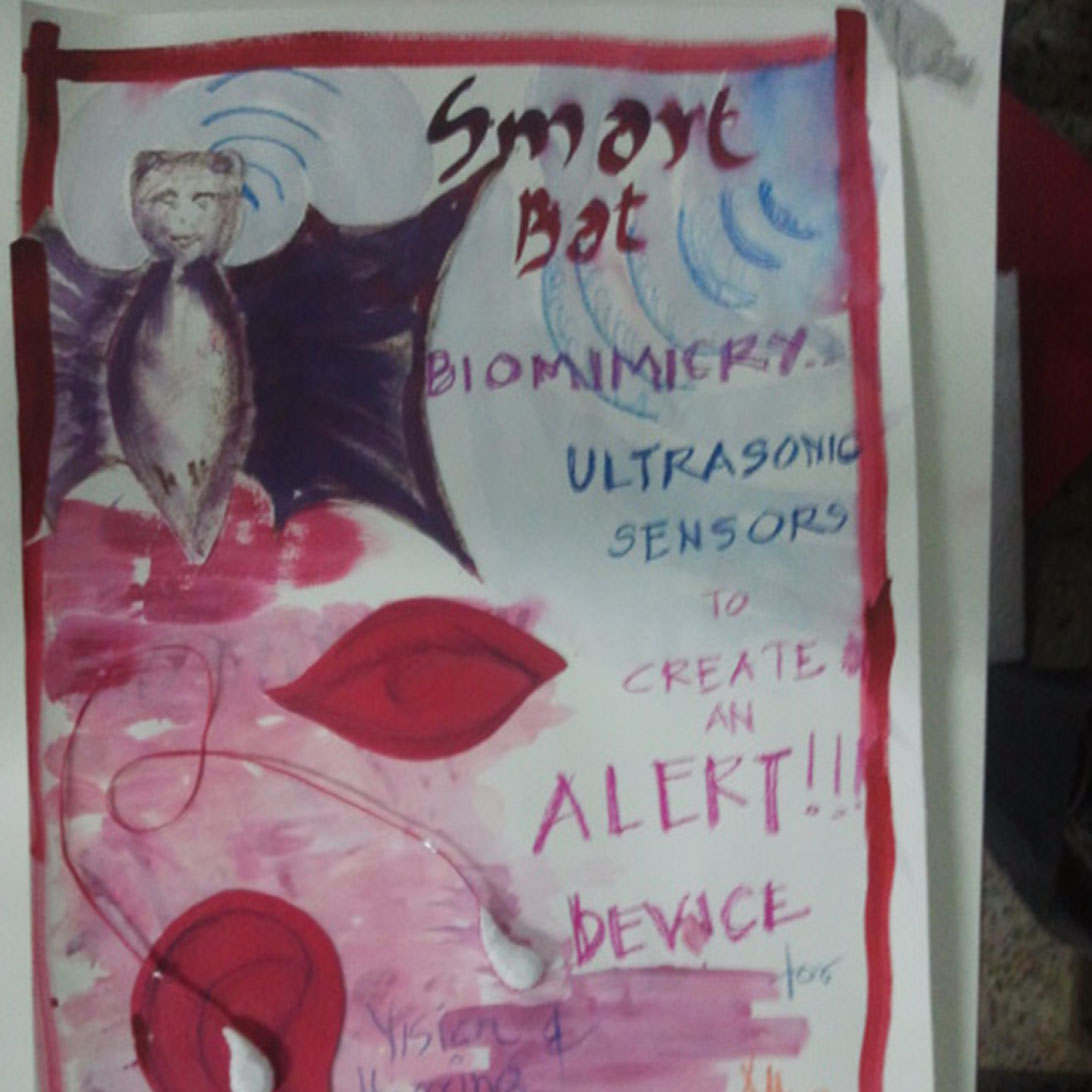 Smart
Bat
BIOMIMICRY...
ULTRASONIC
SENSORS
TO
CREATE
AN
ALERT!!!
DEVICE
for
Vision &
Hearing